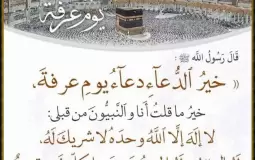 يوم عرفة
قَالَ رَسُولُ اللَّهِ ﷺ :
(( خَيْرُ ٱلدُّعَآءِ دُعَآءُ يَومِ عَرفةَ،
خيرُ ما قلتُ أَنا والنَّبيُّونَ من قبلِي:
لا إلهَ إلَّا اللَّهُ وحدَهُ لا شريكَ لهُ،